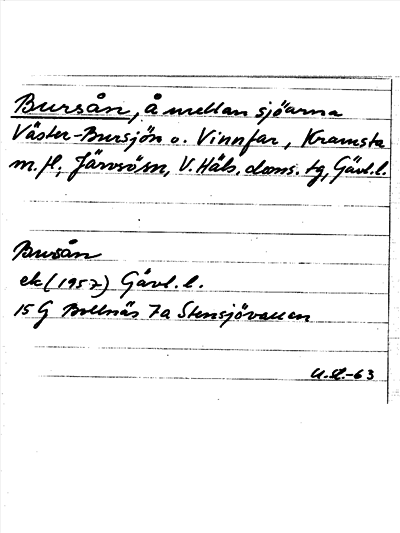 Bursån, å mellan sjöarna
Väster-Bursjön o. Vinnfar, Kramsta
m.fl., Järvsö sn, V. Häls. doms. tg, Gävl. l.
Bursån
ek (1957) Gävl. l.
15 G Bollnäs 7a Stensjövallen
U.St.-63